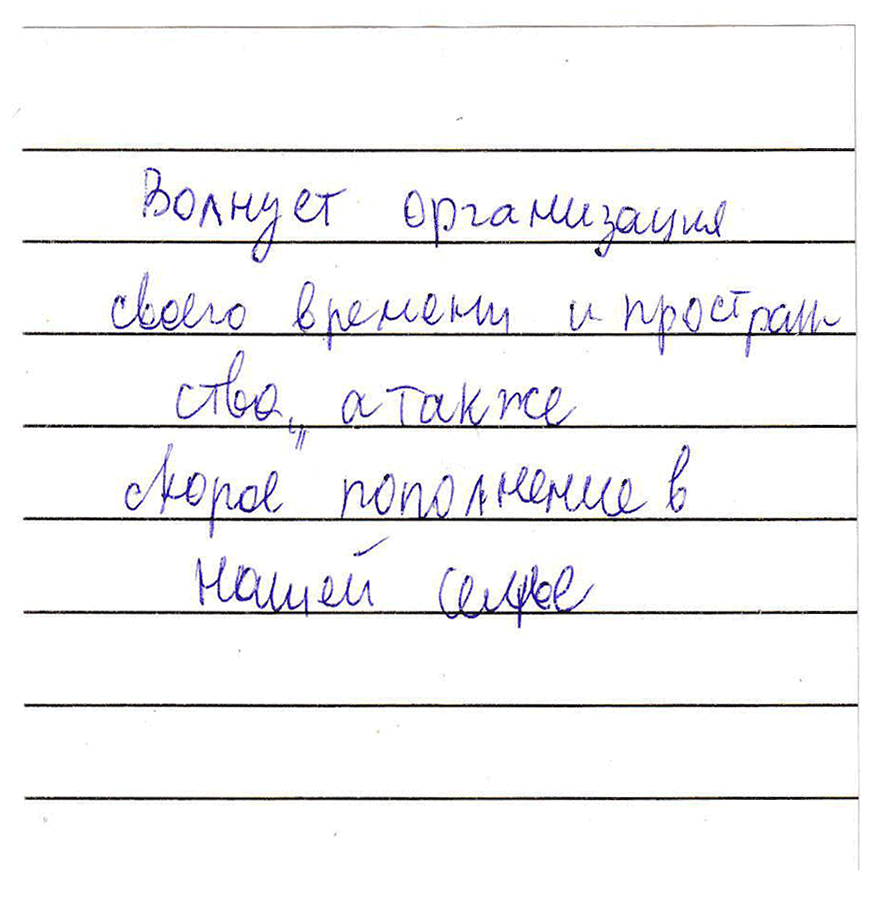 Волнует организация
своего времени и простран
ства, а также
скорое пополнение в
нашей семье